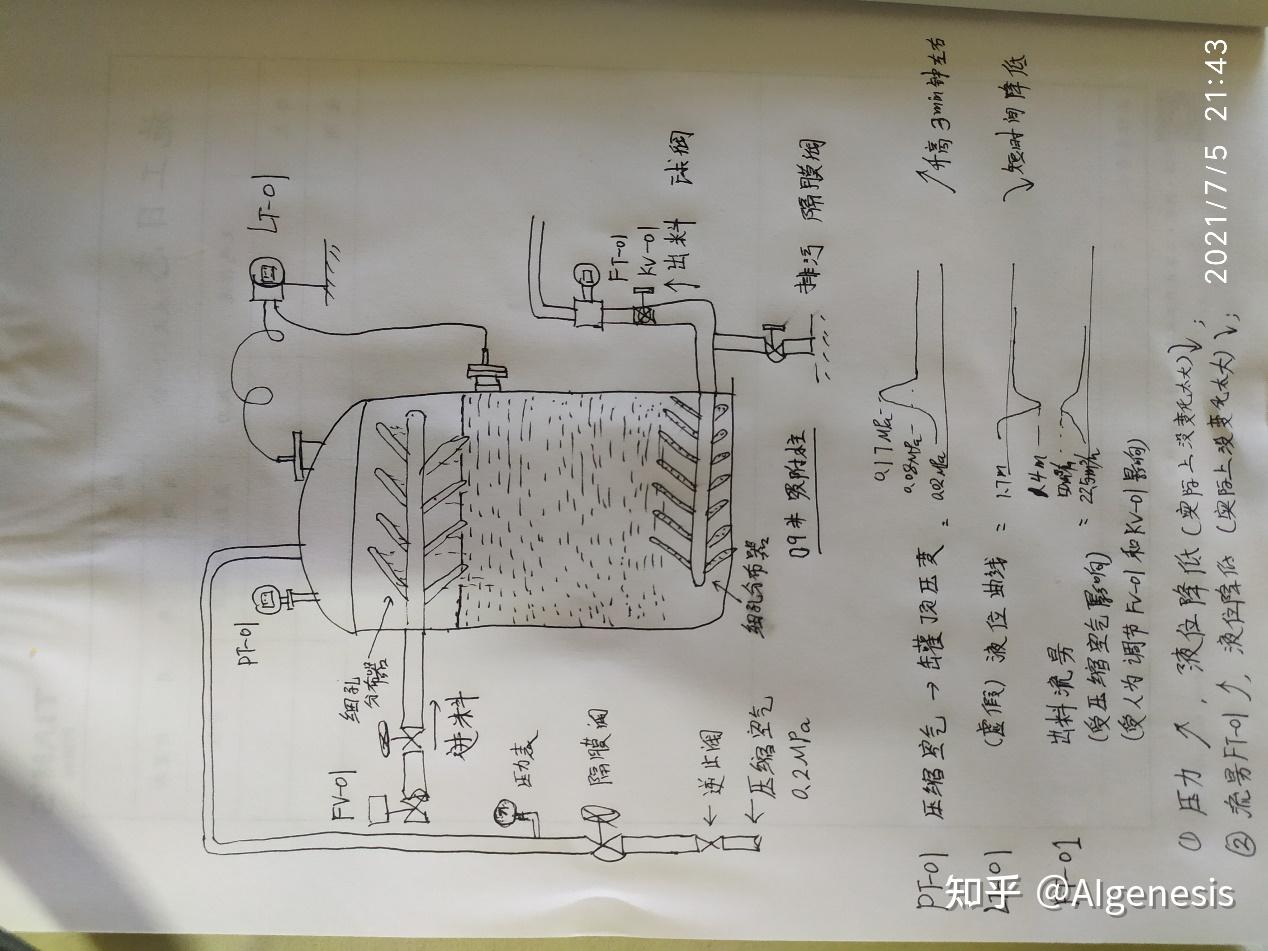 LT-01
PT-01
FV-01
细孔
分布器
进料
压力表
隔膜阀
← 逆止阀
← 压缩空气
0.2MPa
FT-01
KV-01
↑出料
球阀
排污 隔膜阀
细孔分布器
09# 吸附柱
PT-01 压缩空气 → 缶灌顶压变 :
0.17MPa
0.08MPa
0.02MPa
↗升高3min钟左右
LT-01 (虚假) 液位曲线 :
1.7m
1.4m
↘短时间降低
FT-01 出料流号 :
22.5m³/h
(受压缩空气影响)
(受人为调节FV-01和KV-01影响)
① 压力↗, 液位降低 (实际上没变化太大)↘;
② 流号FT-01↗, 液位降低 (实际上没变化太大)↘;
2021/7/5 21:43
知乎 @Algenesis